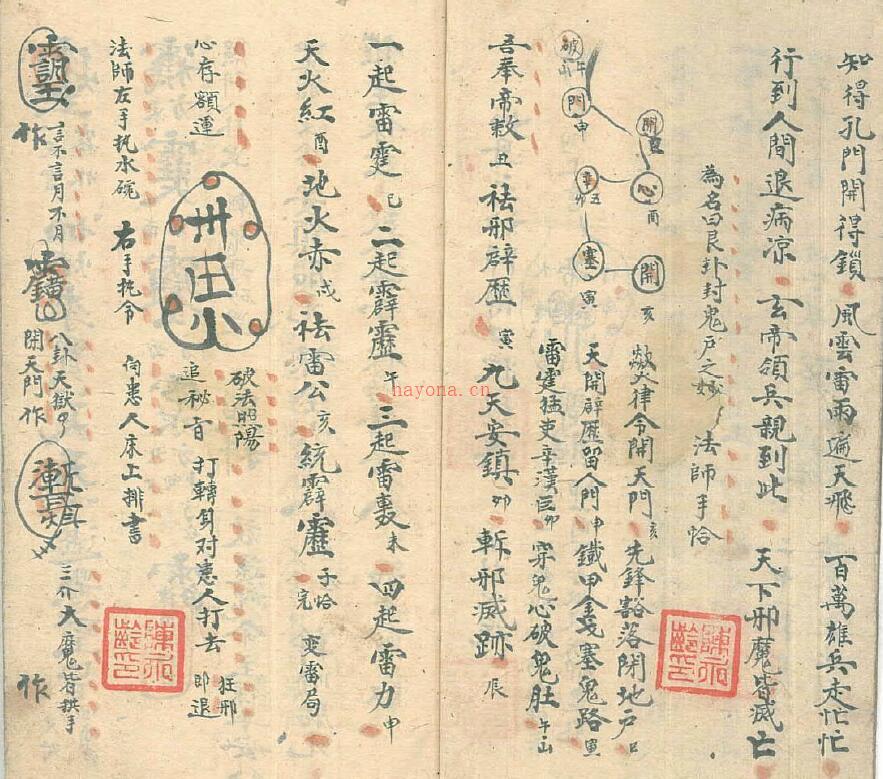 知得孔門開得鎖 風雲雷雨遍天飛 百萬雄兵走忙忙
行到人間退病凉 玄帝領兵親到此 天下邪魔皆滅亡
為名曰艮卦封鬼户之妙 法師手恰
破 午山
門 申
開
心 酉
辛 丑 卯
塞 寅
開 亥
律令開天門 亥 先鋒豁落閉地户 巳
天開辟歷留人門 申 鐵甲金戈塞鬼路 寅
雷霆猛吏辛漢臣 卯 穿鬼心破鬼肚 午山
吾奉帝敕 丑 祛邪辟歷 寅 九天安鎮 卯 斬邪滅跡 辰
一起雷霆 巳 二起霹靂 午 三起雷轟 未 四起雷力 申
天火紅 酉 地火赤 戌 祛雷公 亥 統霹靂 子 恰完 变雷局
心存額運
破法照陽
追秘音 打轉身对患人打去 狂邪即退
法師左手托水碗 右手托令 向患人床上排書
作 言不言月不月
八卦天獄
開天門作
三介大魔皆拱手 作
陳永齡印
陳永齡印
hayona.cn